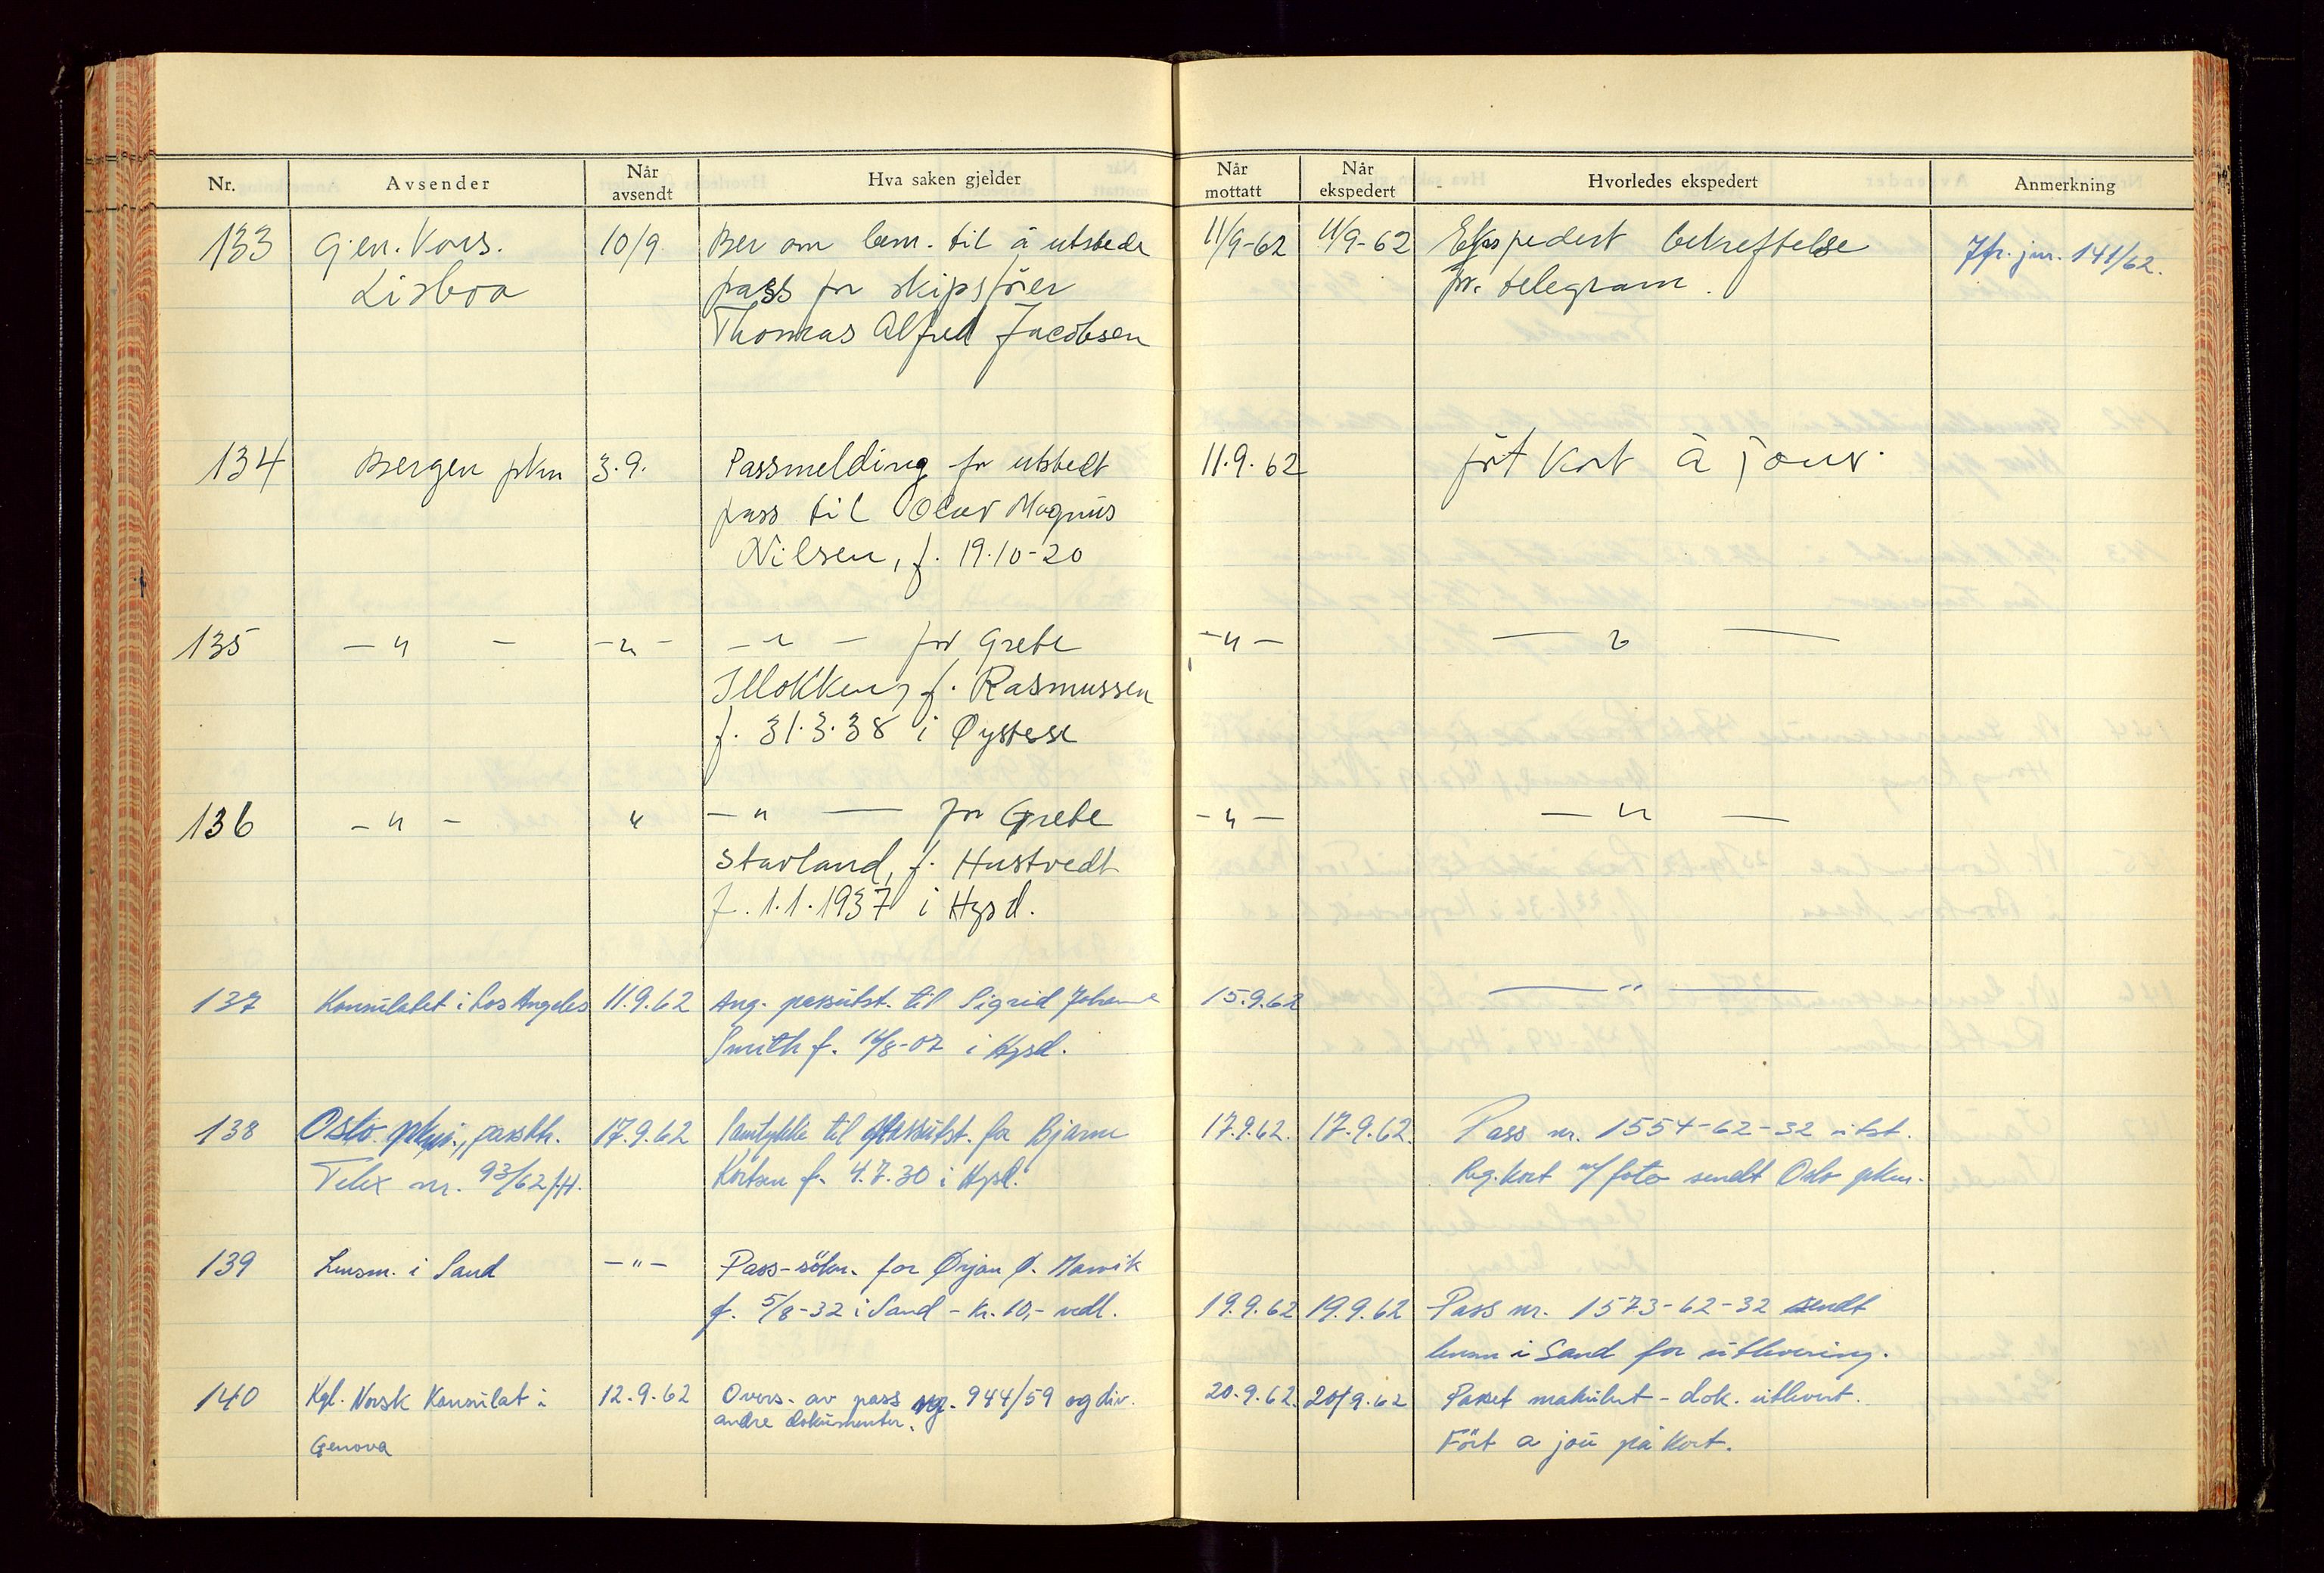 Nr. Avsender Når avsendt Hva saken gjelder Når mottatt Når ekspedert Hvorledes ekspedert Anmerkning
133 Gen. Kons. 10/9. Ber om bem. til å utstede 11/9-62 11/9-62 Ekspedert bekreftelse Jfr. jnr. 141/62.
Lisboa pass for skipsfører pr. telegram.
Thomas Alfred Jacobsen
134 Bergen pkm 3.9. Passmelding for utstedt 11.9.62 ført kort à jour.
pass til Olav Magnus
Nilsen, f. 19.10-20
135 - " - - " - - " - for Grete - " - - " -
Mokken, f. Rasmussen
f. 31.3.38 i Øystese
136 - " - " - " - for Grete - " - - " -
Stavland, f. Hustvedt
f. 1.1.1937 i Hgsd.
137 Konsulatet i Los Angeles 11.9.62 Ang. passutst. til Sigrid Johanne 15.9.62 - " -
Smith f. 16/8-07 i Hgsd.
138 Oslo pkm., passkt. 17.9.62 Samtykke til passutst. for Bjarne 17.9.62. 17.9.62. Pass nr. 1554-62-32 utst.
Telex nr. 93/62/H. f. 4.7.30 i Hgsd. Reg.kort m/foto sendt Oslo pkm.
139 Lensm. i Sand - " - Pass-søkn. for Ørjan Ø. f. 5/8-32 i Sand - kr. 10,- vedl. 19.9.62 19.9.62 Pass nr. 1573-62-32 sendt
lensm i Sand for utlevering.
140 Kgl. Norsk Konsulat i 12.9.62 Overs. av pass 944/59 og div. 20.9.62. 20/9.62 Passet makulert - dok. utlevert.
Genova andre dokumenter. Ført a jou på kort.